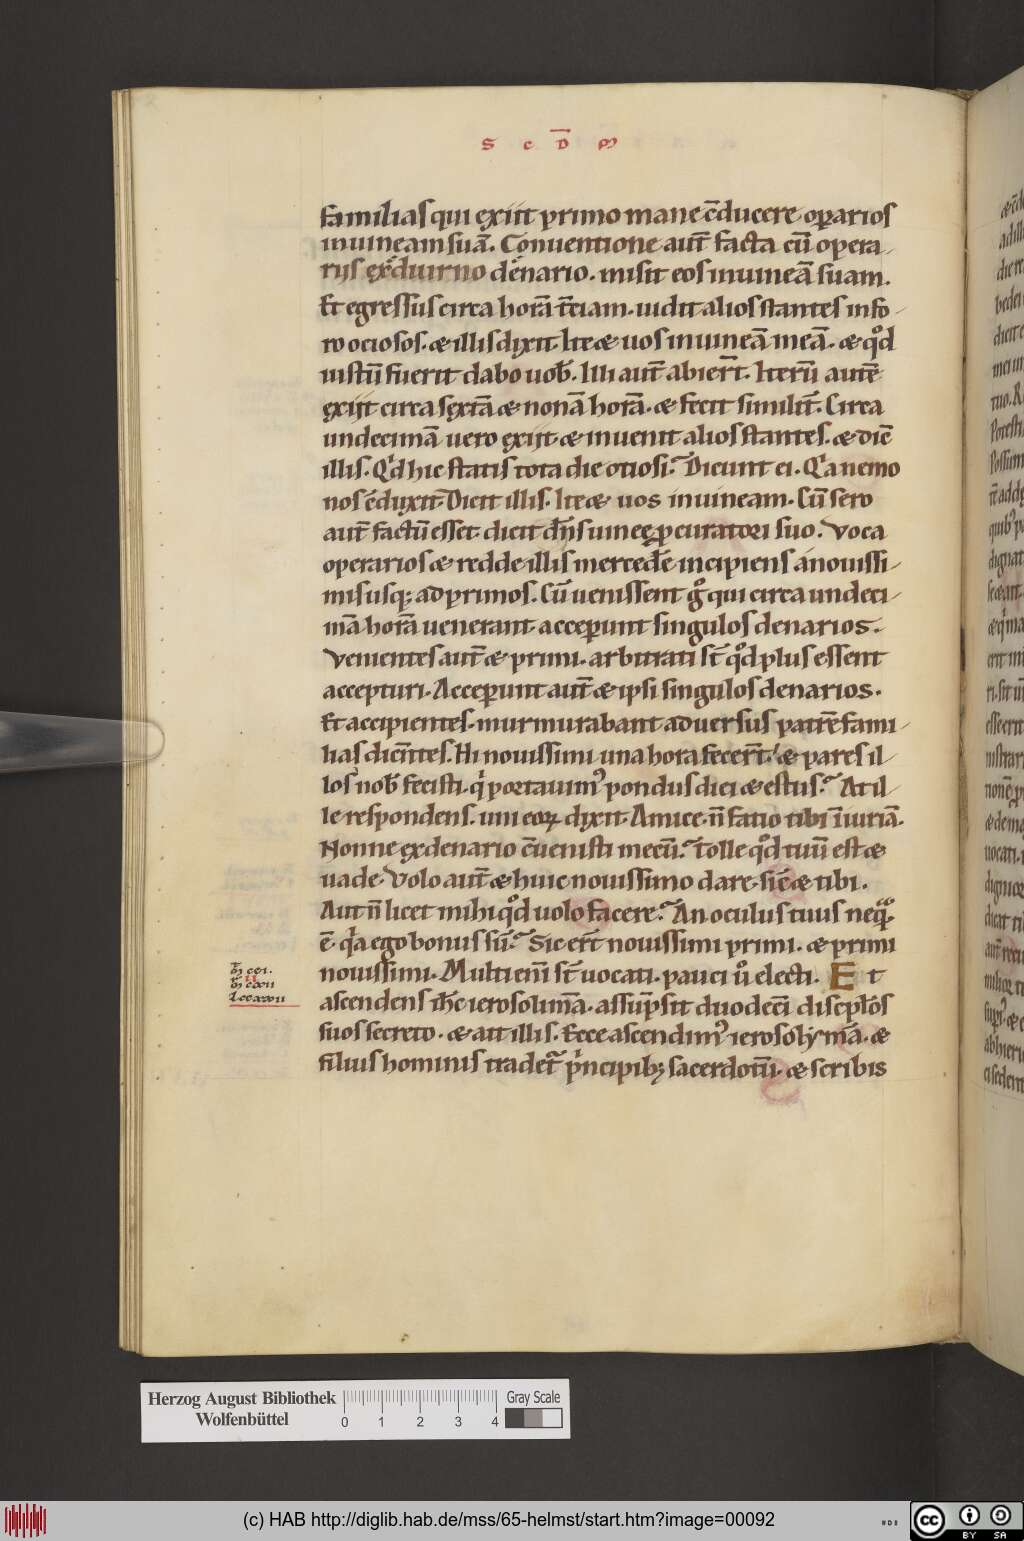 S C D̅ M
familias qui exiit primo mane c̄ducere oꝑarios
in uineam suā. Conuentione aut̄ facta cū opera-
riis ex diurno denario. misit eos in uineā suam.
Et egressus circa horā t̄ciam. uidit alios stantes in fo-
ro ociosos. & illis dixit. Ite & uos in uineā meā. & qͦd
iustū fuerit dabo uob̄. Illi aut̄ abier̄t. Iterū autē
exiit circa sextā & nonā horā. & fecit similit̄. Circa
undecimā uero exiit & inuenit alios stantes. & dic̄
illis. Qͥd hic statis tota die otiosi? Dicunt ei. Qͥa nemo
nos c̄duxit. Dicit illis. Ite & uos in uineam. Cū sero
aut̄ factū esset. dicit dn̄s uineę ꝓcuratori suo. Voca
operarios & redde illis mercedē incipiens a nouissi-
mis usqꝫ ad primos. Cū uenissent gͦ qui circa undeci-
mā horā uenerant acceꝑunt singulos denarios.
Venientes aut̄ & primi. arbitrati st̄ qͦd plus essent
accepturi. Acceꝑunt aut̄ & ipsi singulos denarios.
Et accipientes. murmurabant aduersus patrē fami-
lias dicētes. Hi nouissimi una hora fecer̄t. & pares il-
los nob̄ fecisti. qͥ portauimꝰ pondus diei & estus? At il-
le respondens. uni eoꝝ dixit. Amice. n̄ facio tibi īiuriā.
Nonne ex denario c̄uenisti mecū? Tolle qͦd tuū est &
uade. Volo aut̄ & huic nouissimo dare. sic̄ & tibi.
Aut n̄ licet mihi qͦd uolo facere? An oculus tuus neqͣꝫ
ē. qͥa ego bonus sū? Sic er̄t nouissimi primi. & primi
nouissimi. Multi eni̅ st̄ uocati. pauci uͦ electi. Et
ascendens ih̄c ierosolimā. assūpsit duodeci̅ discipl̄os
suos secreto. & ait illis. Ecce ascendimꝰ ierosolymā. &
filius hominis tradet̄ pͥncipibꝫ sacerdotū. & scribis
Herzog August Bibliothek
Wolfenbüttel
0 1 2 3 4
Gray Scale
(c) HAB http://diglib.hab.de/mss/65-helmst/start.htm?image=00092
cc BY SA